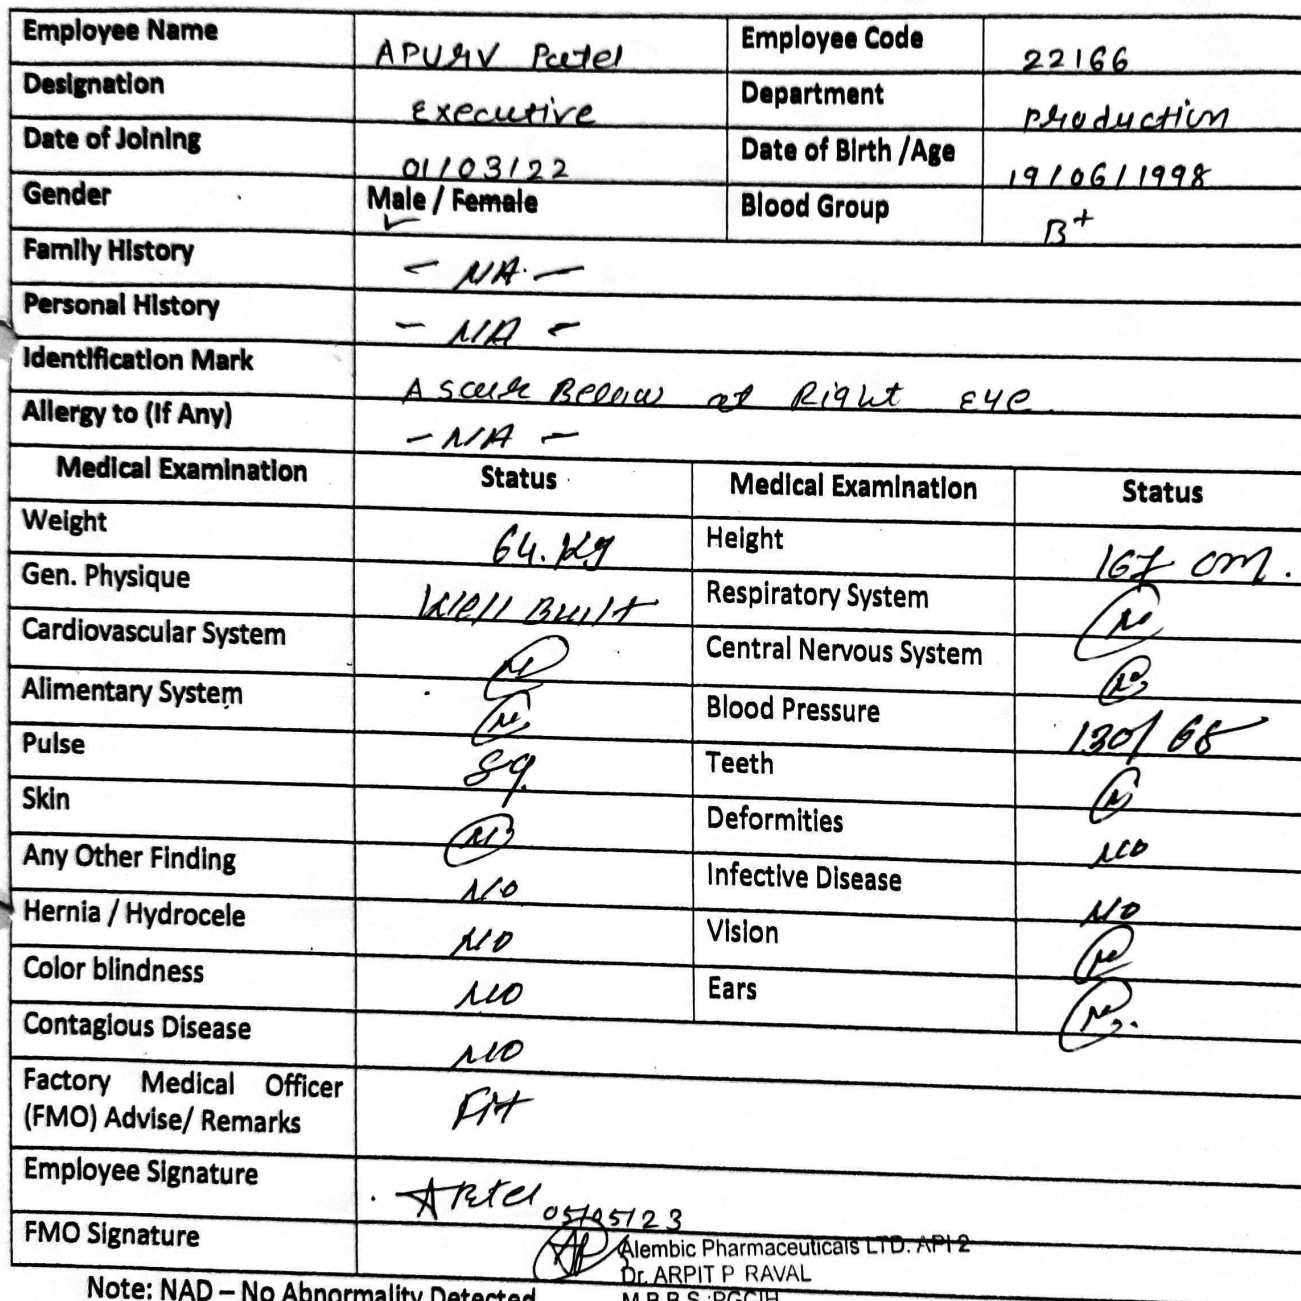 Employee Name APURV Patel Employee Code 22166
Designation Executive Department Production
Date of Joining 01/03/22 Date of Birth /Age 19/06/1998
Gender Male / Female Blood Group B+
Family History - NA. -
Personal History - NA -
Identification Mark A scar Below at Right EYE
Allergy to (If Any) - NA -
Medical Examination Status Medical Examination Status
Weight 64. Kg Height 167 cm.
Gen. Physique Well Built Respiratory System
Cardiovascular System Central Nervous System
Alimentary System Blood Pressure 130/68
Pulse 89. Teeth
Skin Deformities NO
Any Other Finding NO Infective Disease NO
Hernia / Hydrocele NO Vision
Color blindness NO Ears
Contagious Disease NO
Factory Medical Officer
(FMO) Advise/ Remarks Fit
Employee Signature APatel 05/05/23
FMO Signature Alembic Pharmaceuticals LTD. API 2
Dr. ARPIT P RAVAL
Note: NAD – No Abnormality Detected M.B.B.S.,PGCIH